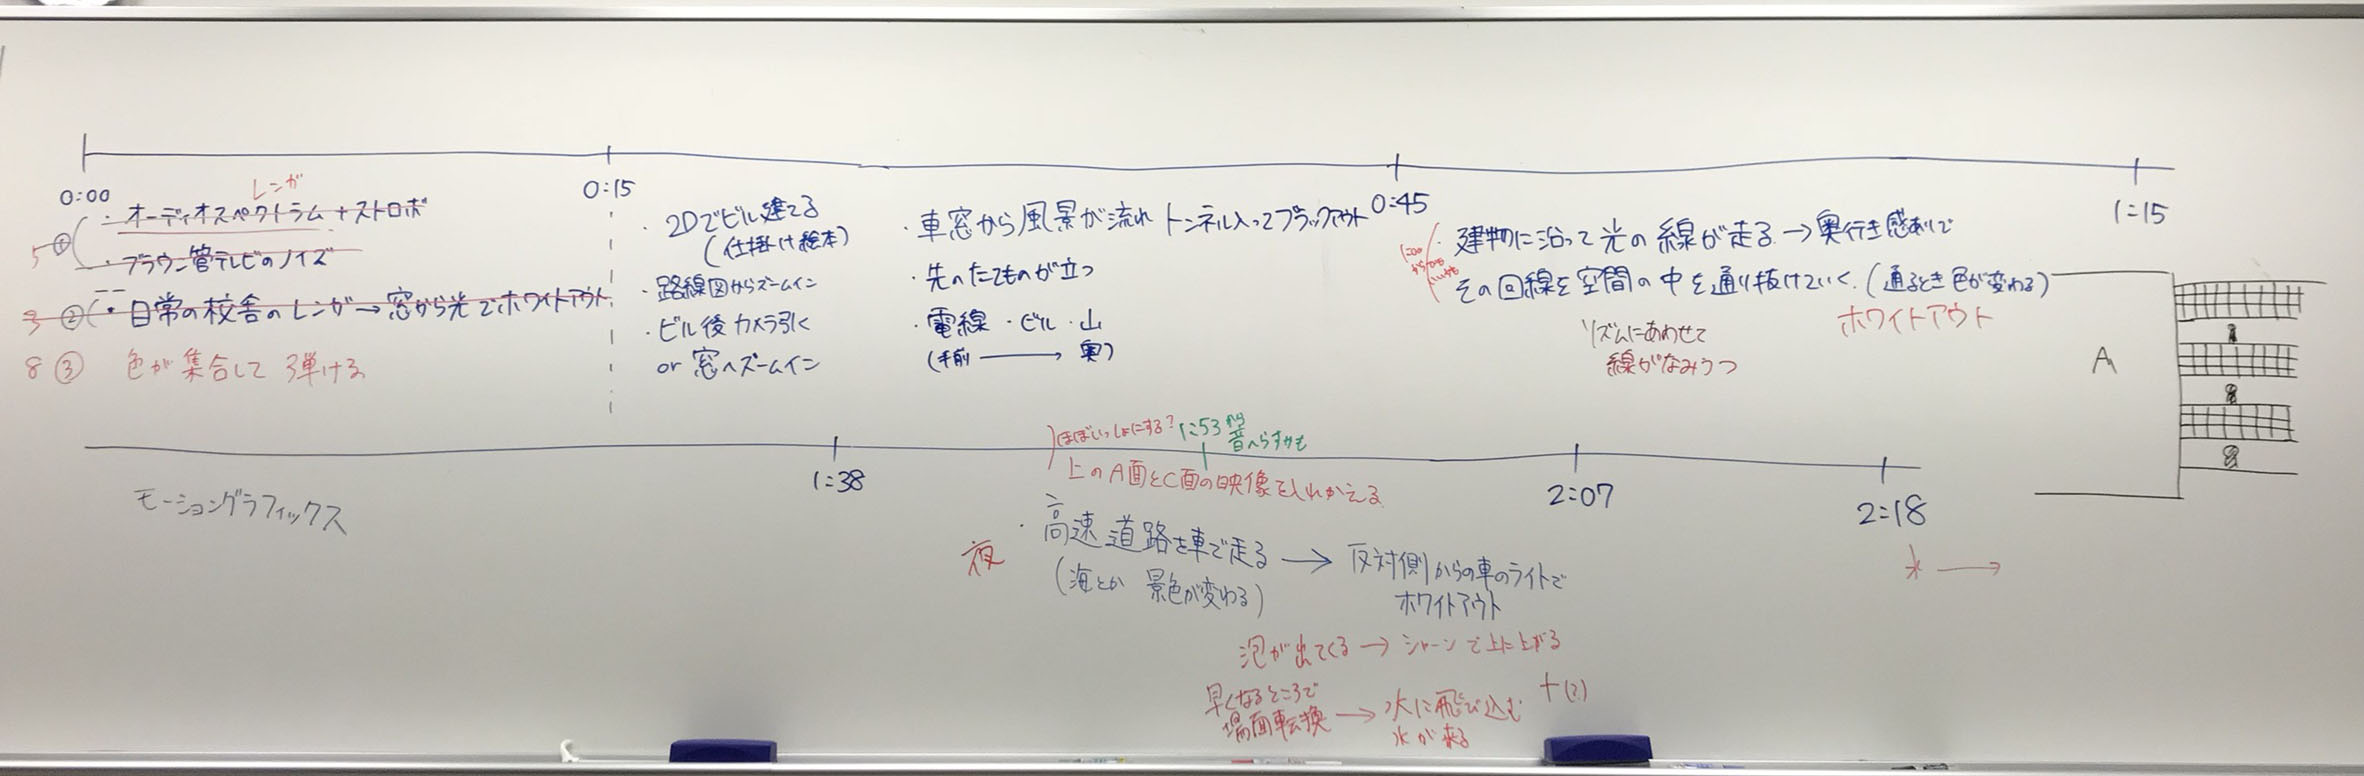 0:00
0:15
0:45
1:15
レンガ
5 ① ・オーディオスペクトラム+ストロボ
・ブラウン管テレビのノイズ
3 ② ・日常の校舎のレンガ→窓から光でホワイトアウト
8 ③ 色が集合して弾ける
・2Dでビル建てる
(仕掛け絵本)
・路線図からズームイン
・ビル後カメラ引く
or 窓へズームイン
・車窓から風景が流れトンネル入ってブラックアウト
・先のたてものが立つ
・電線・ビル・山
(手前→奥)
・建物に沿って光の線が走る→奥行き感ありで
その回線を空間の中を通り抜けていく。(通るとき色が変わる)
リズムにあわせて
線がなみうつ
ホワイトアウト
A
1:38
2:07
2:18
モーショングラフィックス
ほぼいっしょにする?
1:53から
音へらすかも
上のA面とC面の映像を入れかえる
夜
・高速道路を車で走る→反対側からの車のライトで
ホワイトアウト
(海とか景色が変わる)
泡が出てくる→シャーンで上に上がる
早くなるところで
場面転換→水に飛び込む
水が来る
+(2)
水→